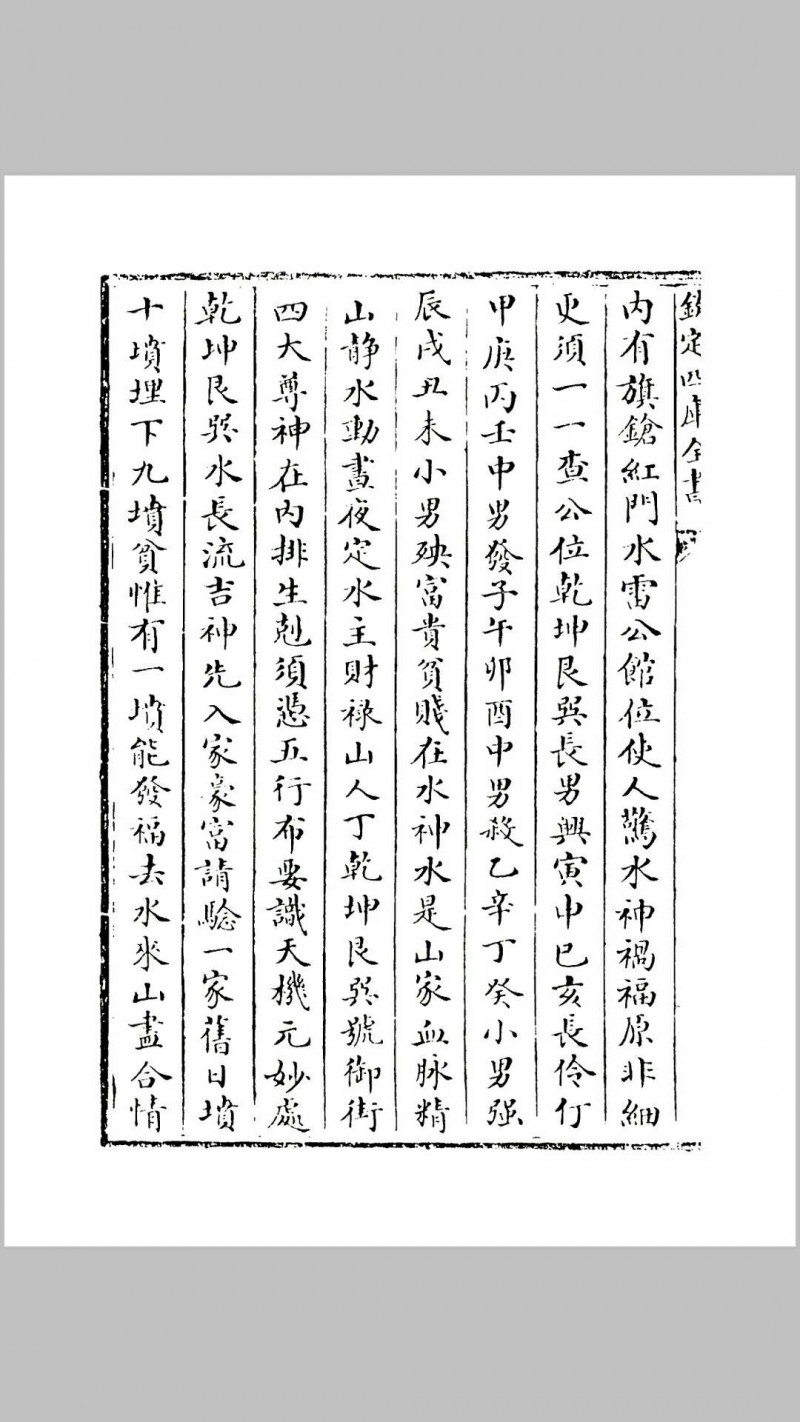 欽定四庫全書
内有旗鎗紅門水雷公館位使人驚水神禍福原非細
更須一一查公位乾坤艮巽長男興寅申巳亥長伶仃
甲庚丙壬中男發子午卯酉中男殺乙辛丁癸小男强
辰戌丑未小男殃富貴貧賤在水神水是山家血脉精
山静水動晝夜定水主財禄山人丁乾坤艮巽號御街
四大尊神在内排生剋須憑五行布要識天機元妙處
乾坤艮巽水長流吉神先入家豪富請驗一家舊日墳
十墳埋下九墳貧惟有一墳能發福去水來山盡合情